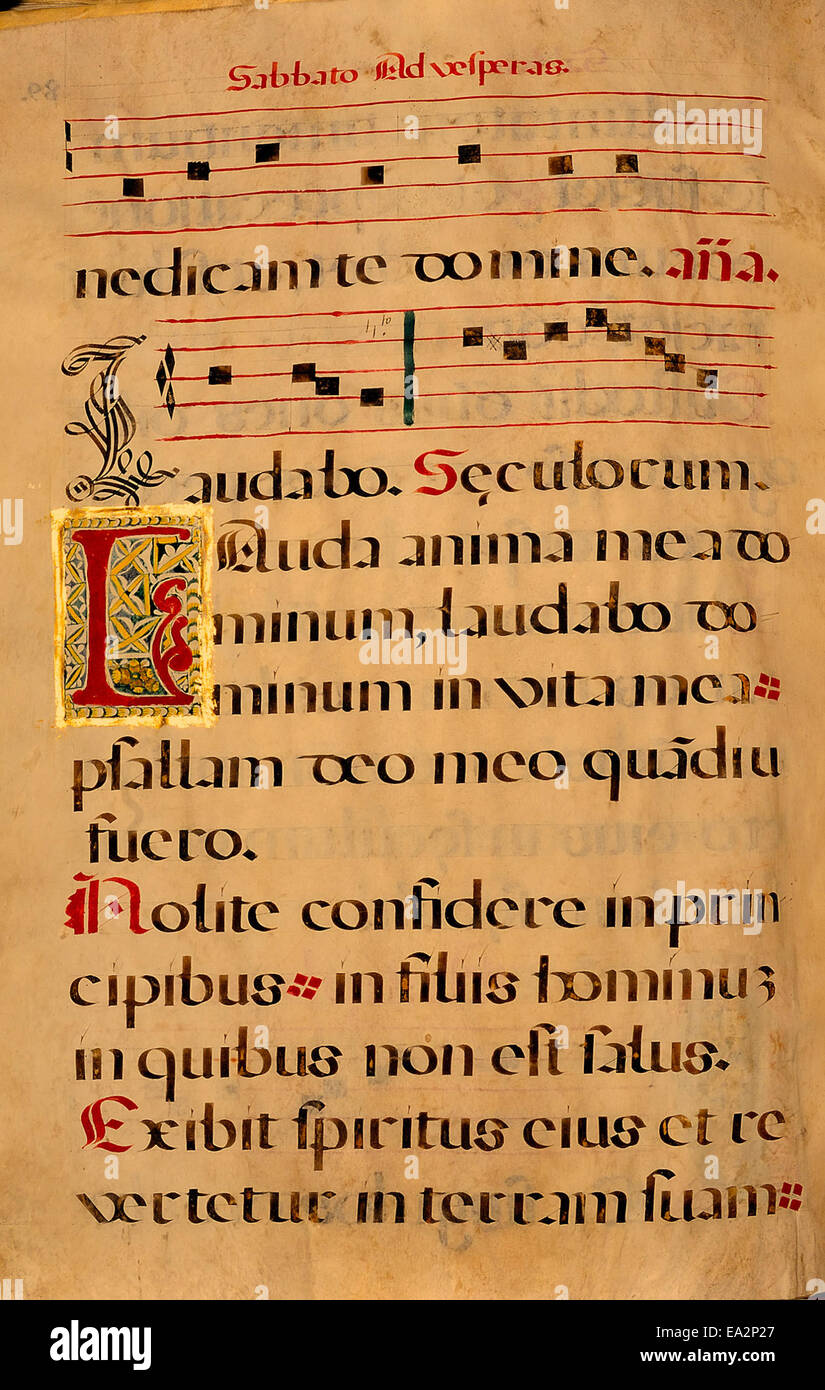 Sabbato Ad vesperas.
nedicam te domine. añã.
Laudabo. Sęculorum.
LAuda anima mea do
minum, laudabo do
minum in vita mea
psallam deo meo quãdiu
fuero.
Nolite confidere in prin
cipibus in filiis hominuʒ
in quibus non est salus.
Exibit spiritus eius et re
vertetur in terram suam
alamy
alamy stock photo
EA2P27
www.alamy.com